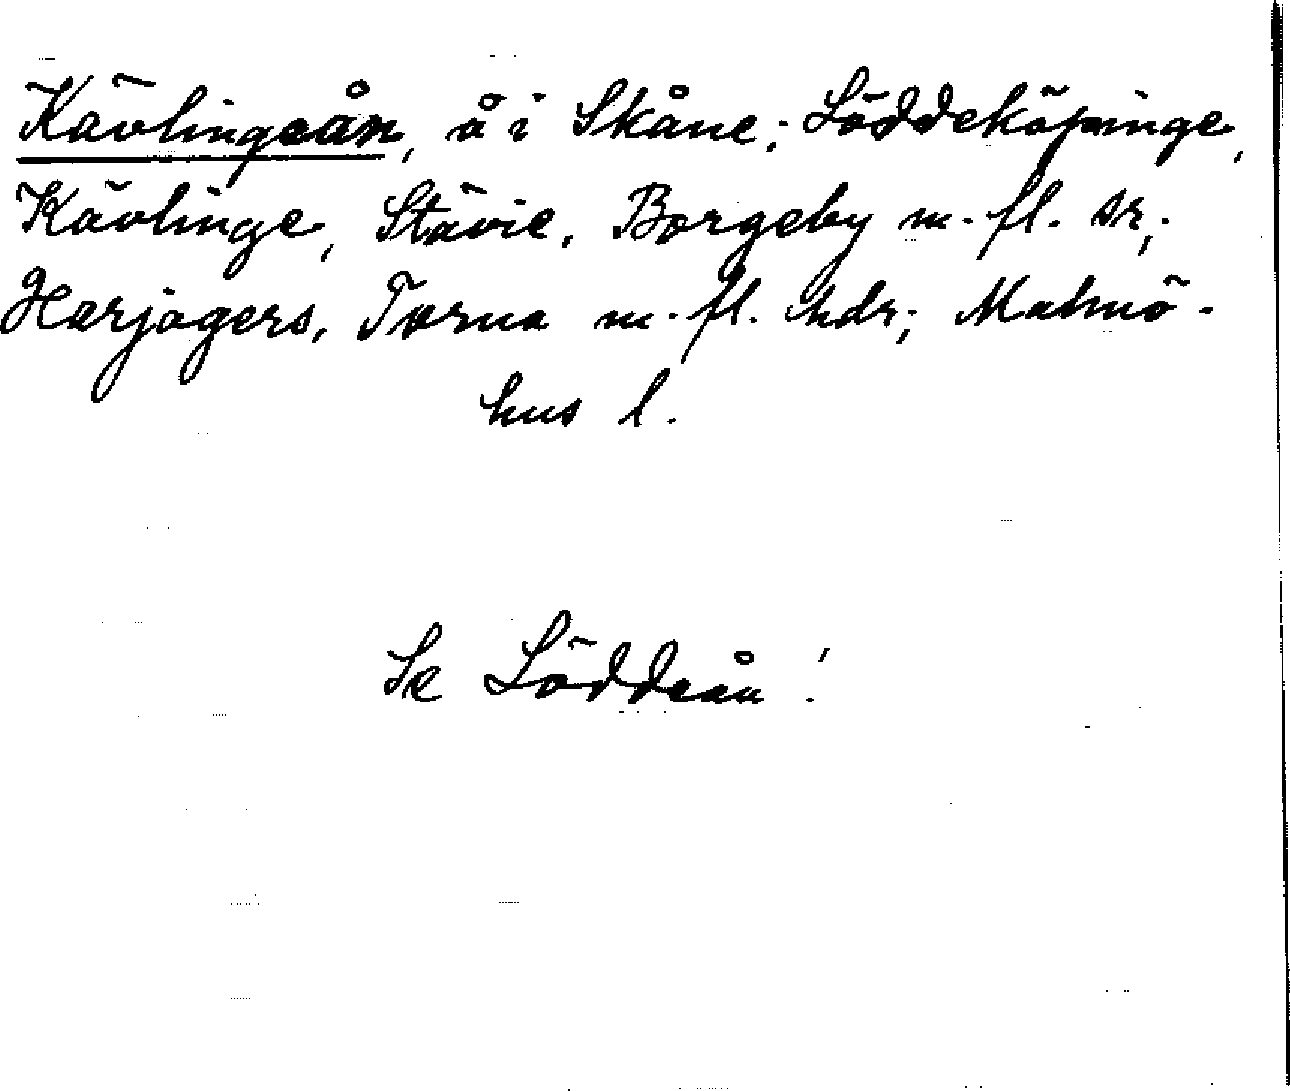 Kävlingeån, å i Skåne; Löddeköpinge,
Kävlinge, Stävie, Borgeby m. fl. sr,;
Harjagers, Torna m. fl. hdr; Malmö-
hus l.
Se Löddeån!